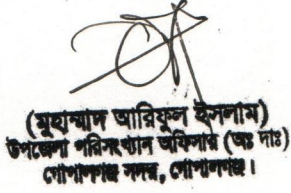 (মুহাম্মদ আরিফুল ইসলাম)
উপজেলা পরিসংখ্যান অফিসার (অঃ দাঃ)
গোপালগঞ্জ সদর, গোপালগঞ্জ।